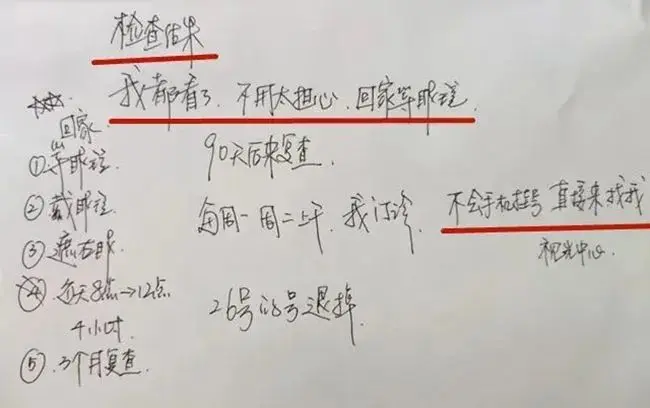 检查结果
我都看了,不用太担心,回家等眼镜.
☆☆ 回家
①等眼镜.
②戴眼镜.
③遮右眼.
④每天8点→12点
4小时.
⑤3个月复查.
90天后来复查.
每周一周二上午,我门诊.
不会手机挂号 直接来找我
视光中心.
26号的号退掉.